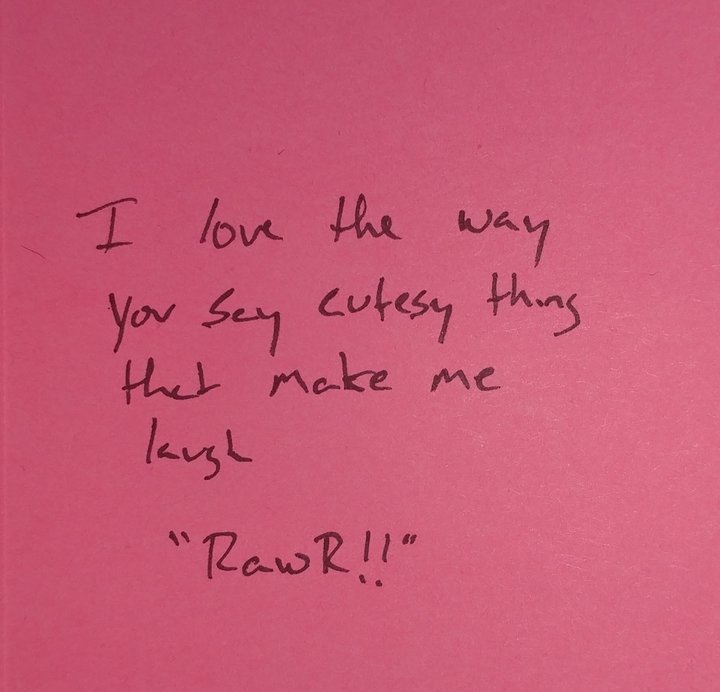 I love the way
you say cutesy thing
that make me
laugh
"RawR!!"